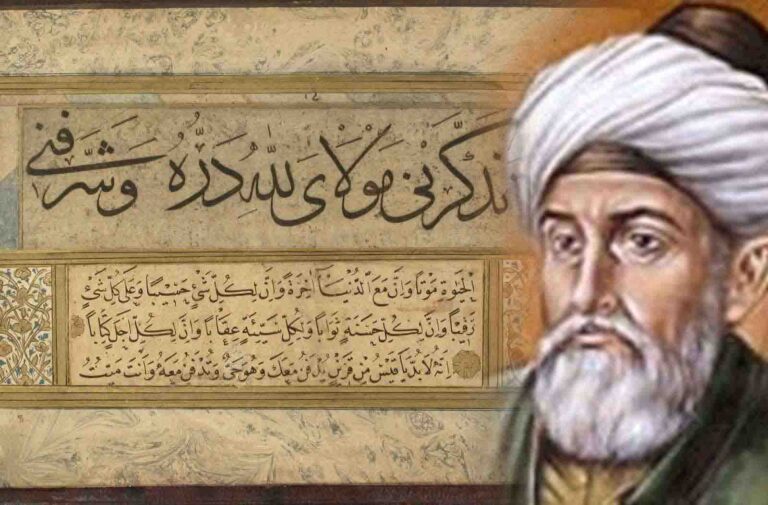 تَذَكَّرَنِي مَوْلَايَ لِلّٰهِ دَرُّهُ وَشَرَّفَنِي
الْحَيٰوةِ مَوْتًا وَاِنَّ مَعَ الدُّنْيَا اٰخِرَةً وَاِنَّ لِكُلِّ شَيْءٍ حَسِيْبًا وَعَلٰى كُلِّ شَيْءٍ
رَقِيْبًا وَاِنَّ لِكُلِّ حَسَنَةٍ ثَوَابًا وَلِكُلِّ سَيِّئَةٍ عِقَابًا وَاِنَّ لِكُلِّ اَجَلٍ كِتَابًا
اِنَّهُ لَا بُدَّ يَا قَيْسُ مِنْ قَرِيْنٍ يُدْفَنُ مَعَكَ وَهُوَ حَيٌّ وَتُدْفَنُ مَعَهُ وَاَنْتَ مَيِّتٌ